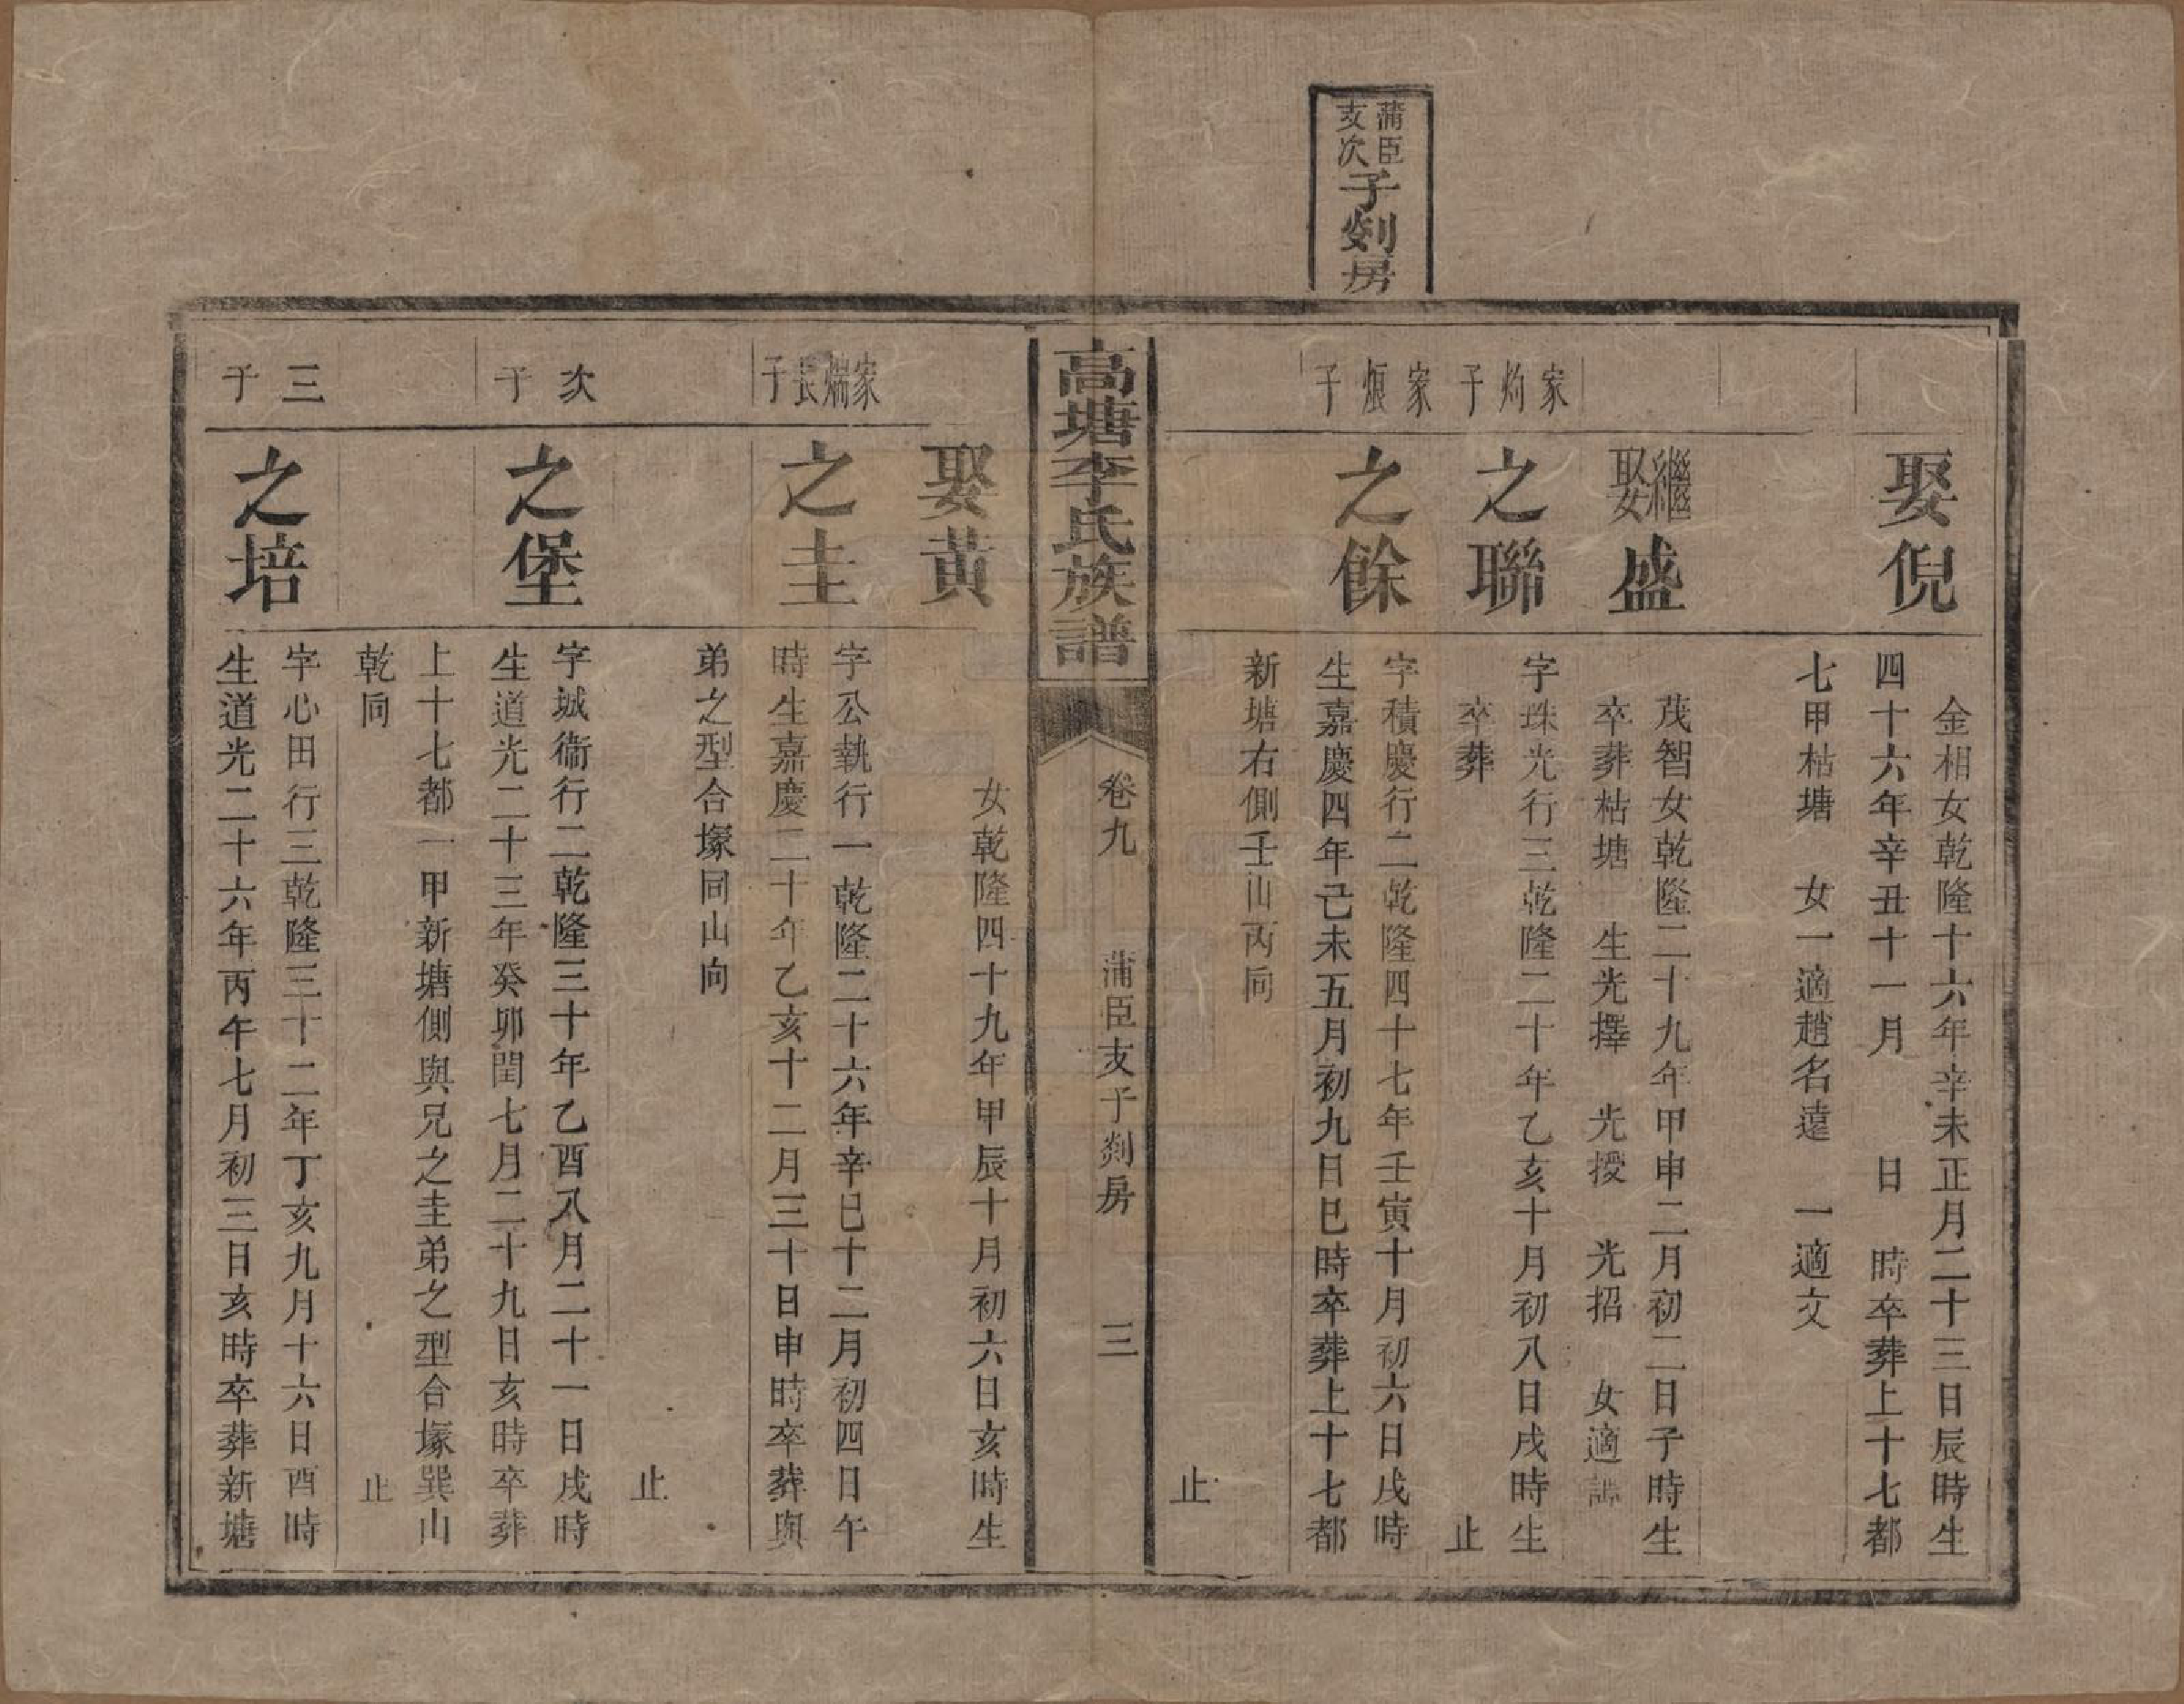 蒲臣
支次
子剡房
娶倪
金相女乾隆十六年辛未正月二十三日辰時生
四十六年辛丑十一月　日　時卒葬上十七都
七甲枯塘　女一適趙名遠　一適文
繼娶盛
茂智女乾隆二十九年甲申二月初二日子時生
卒葬枯塘　生光擇　光授　光招　女適譚
家灼子
之聯
字珠光行三乾隆二十年乙亥十月初八日戌時生
卒葬　止
家烺子
之餘
字積慶行二乾隆四十七年壬寅十月初六日戌時
生嘉慶四年己未五月初九日巳時卒葬上十七都
新塘右側壬山丙向
止
高塘李氏族譜
卷九　蒲臣支子剡房　三
娶黃
女乾隆四十九年甲辰十月初六日亥時生
家煓長子
之圭
字公執行一乾隆二十六年辛巳十二月初四日午
時生嘉慶二十年乙亥十二月三十日申時卒葬與
弟之型合塚同山向
止
次子
之堡
字城衞行二乾隆三十年乙酉八月二十一日戌時
生道光二十三年癸卯閏七月二十九日亥時卒葬
上十七都一甲新塘側與兄之圭弟之型合塚巽山
乾向　止
三子
之培
字心田行三乾隆三十二年丁亥九月十六日酉時
生道光二十六年丙午七月初三日亥時卒葬新塘